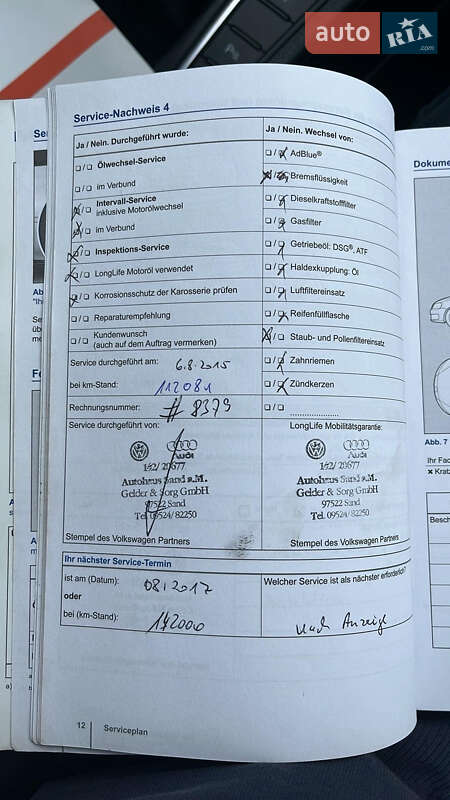 auto RIA .com
Service-Nachweis 4
Ja / Nein. Durchgeführt wurde:
❑ / ❑ Ölwechsel-Service
❑ / ❑ im Verbund
❑ / ❑ Intervall-Service
inklusive Motorölwechsel
❑ / ❑ im Verbund
❑ / ❑ Inspektions-Service
❑ / ❑ LongLife Motoröl verwendet
❑ / ❑ Korrosionsschutz der Karosserie prüfen
❑ / ❑ Reparaturempfehlung
❑ / ❑ Kundenwunsch
(auch auf dem Auftrag vermerken)
Service durchgeführt am: 6.8.2015
bei km-Stand: 112081
Rechnungsnummer: # 8379
Service durchgeführt von:
Audi
142/ 20677
Autohaus Sand a.M.
Gelder & Sorg GmbH
97522 Sand
Tel. 09524/82250
Stempel des Volkswagen Partners
Ja / Nein. Wechsel von:
❑ / ❑ AdBlue®
❑ / ❑ Bremsflüssigkeit
❑ / ❑ Dieselkraftstofffilter
❑ / ❑ Gasfilter
❑ / ❑ Getriebeöl: DSG®, ATF
❑ / ❑ Haldexkupplung: Öl
❑ / ❑ Luftfiltereinsatz
❑ / ❑ Reifenfüllflasche
❑ / ❑ Staub- und Pollenfiltereinsatz
❑ / ❑ Zahnriemen
❑ / ❑ Zündkerzen
❑ / ❑ ....................
LongLife Mobilitätsgarantie:
Audi
142/ 20677
Autohaus Sand a.M.
Gelder & Sorg GmbH
97522 Sand
Tel. 09524/82250
Stempel des Volkswagen Partners
Ihr nächster Service-Termin
ist am (Datum): 08.2017
oder
bei (km-Stand): 142000
Welcher Service ist als nächster erforderlich?
nach Anzeige
12 Serviceplan
Dokume
Abb. 7
Ihr Fac
× Kratz
Besch